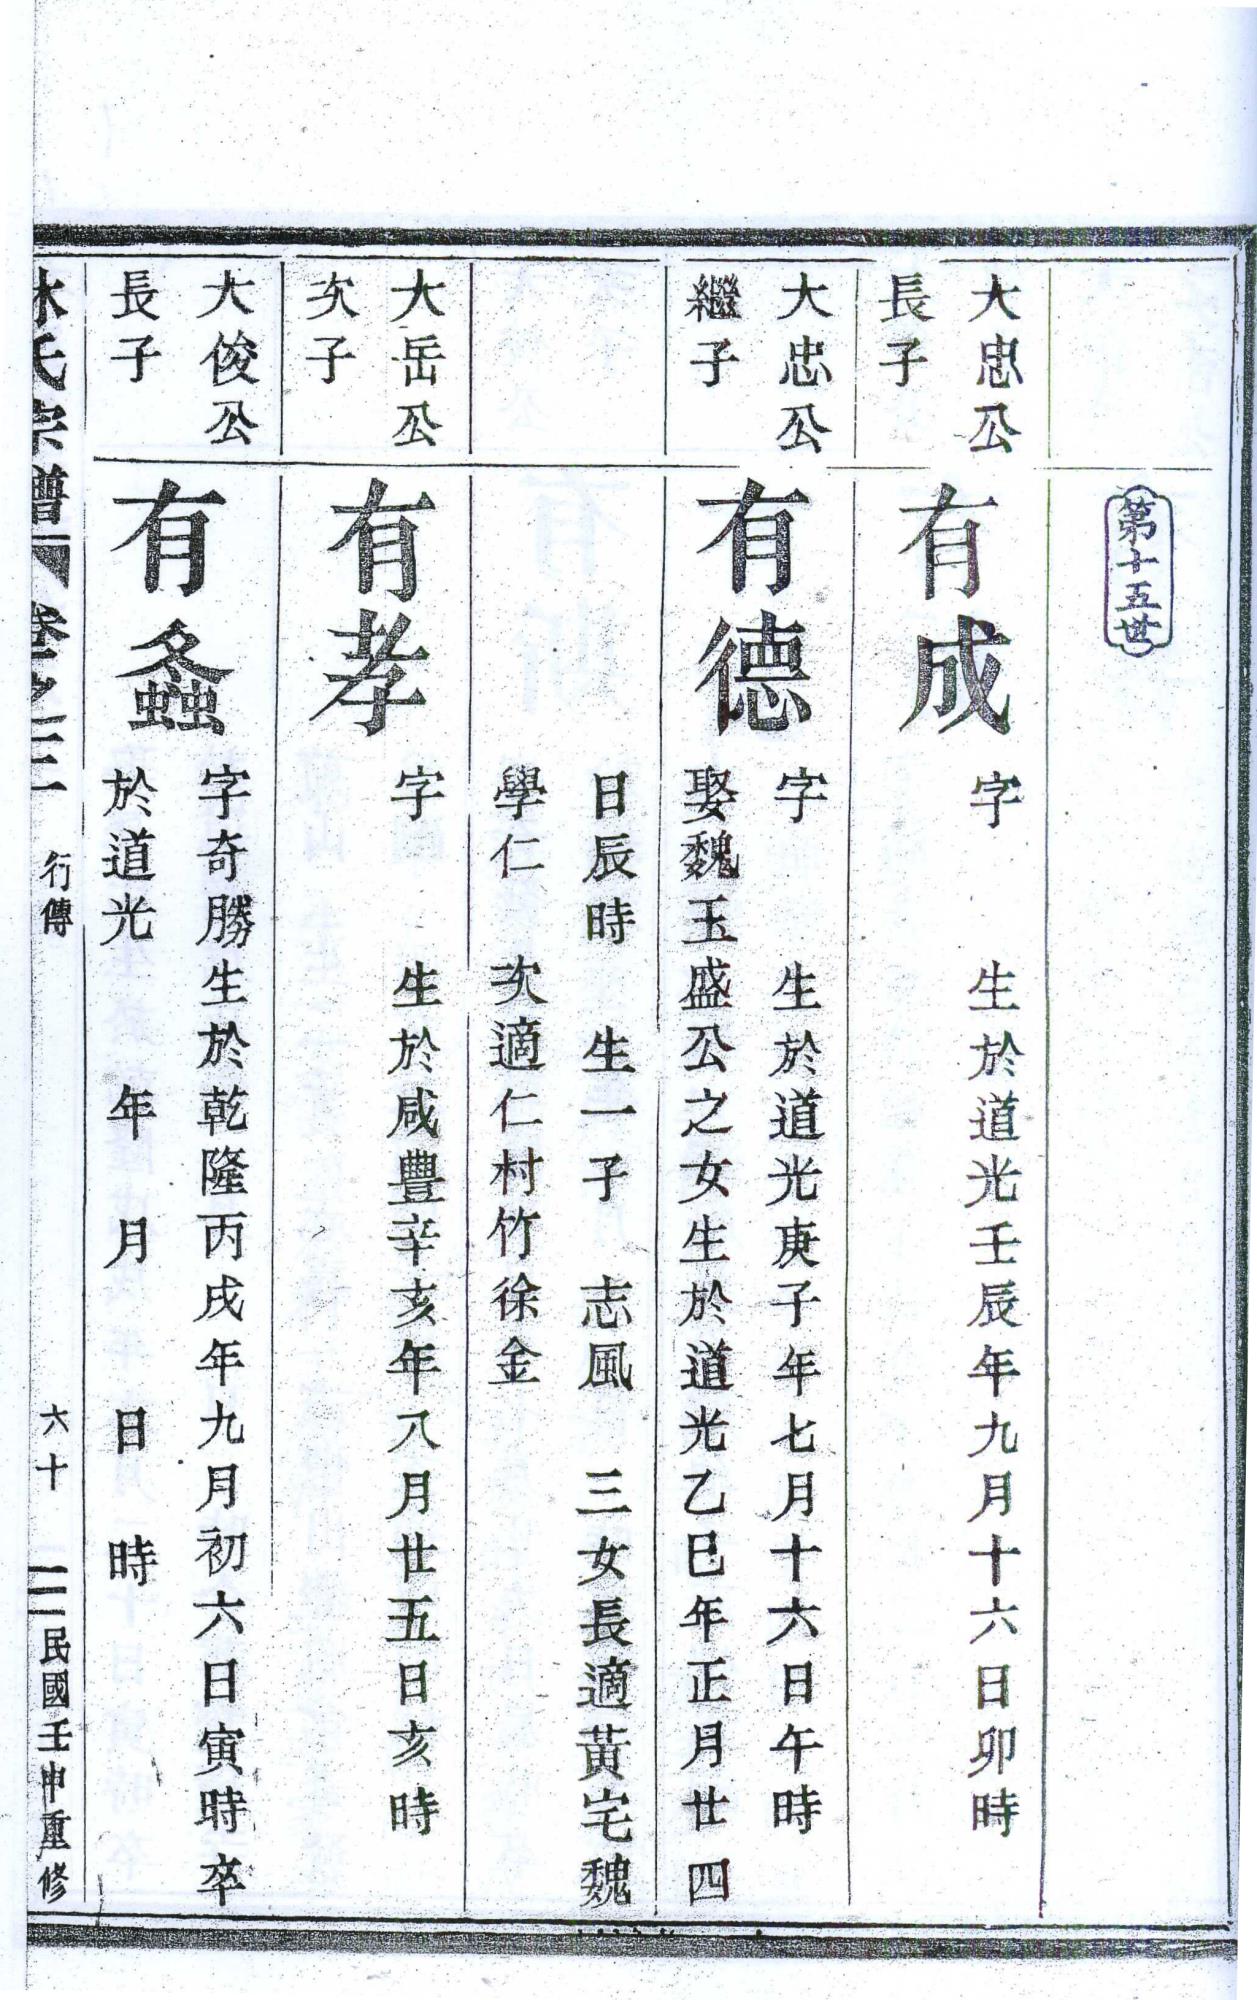 第十五世
大忠公
長子
有成
字 生於道光壬辰年九月十六日卯時
大忠公
繼子
有德
字 生於道光庚子年七月十六日午時
娶魏玉盛公之女生於道光乙巳年正月廿四
日辰時 生一子 志風 三女長適黃宅魏
學仁 次適仁村竹徐金
大岳公
次子
有孝
字 生於咸豐辛亥年八月廿五日亥時
大俊公
長子
有螽
字奇勝生於乾隆丙戌年九月初六日寅時卒
於道光 年 月 日 時
林氏宗譜 卷之三 行傳 六十 民國壬申重修